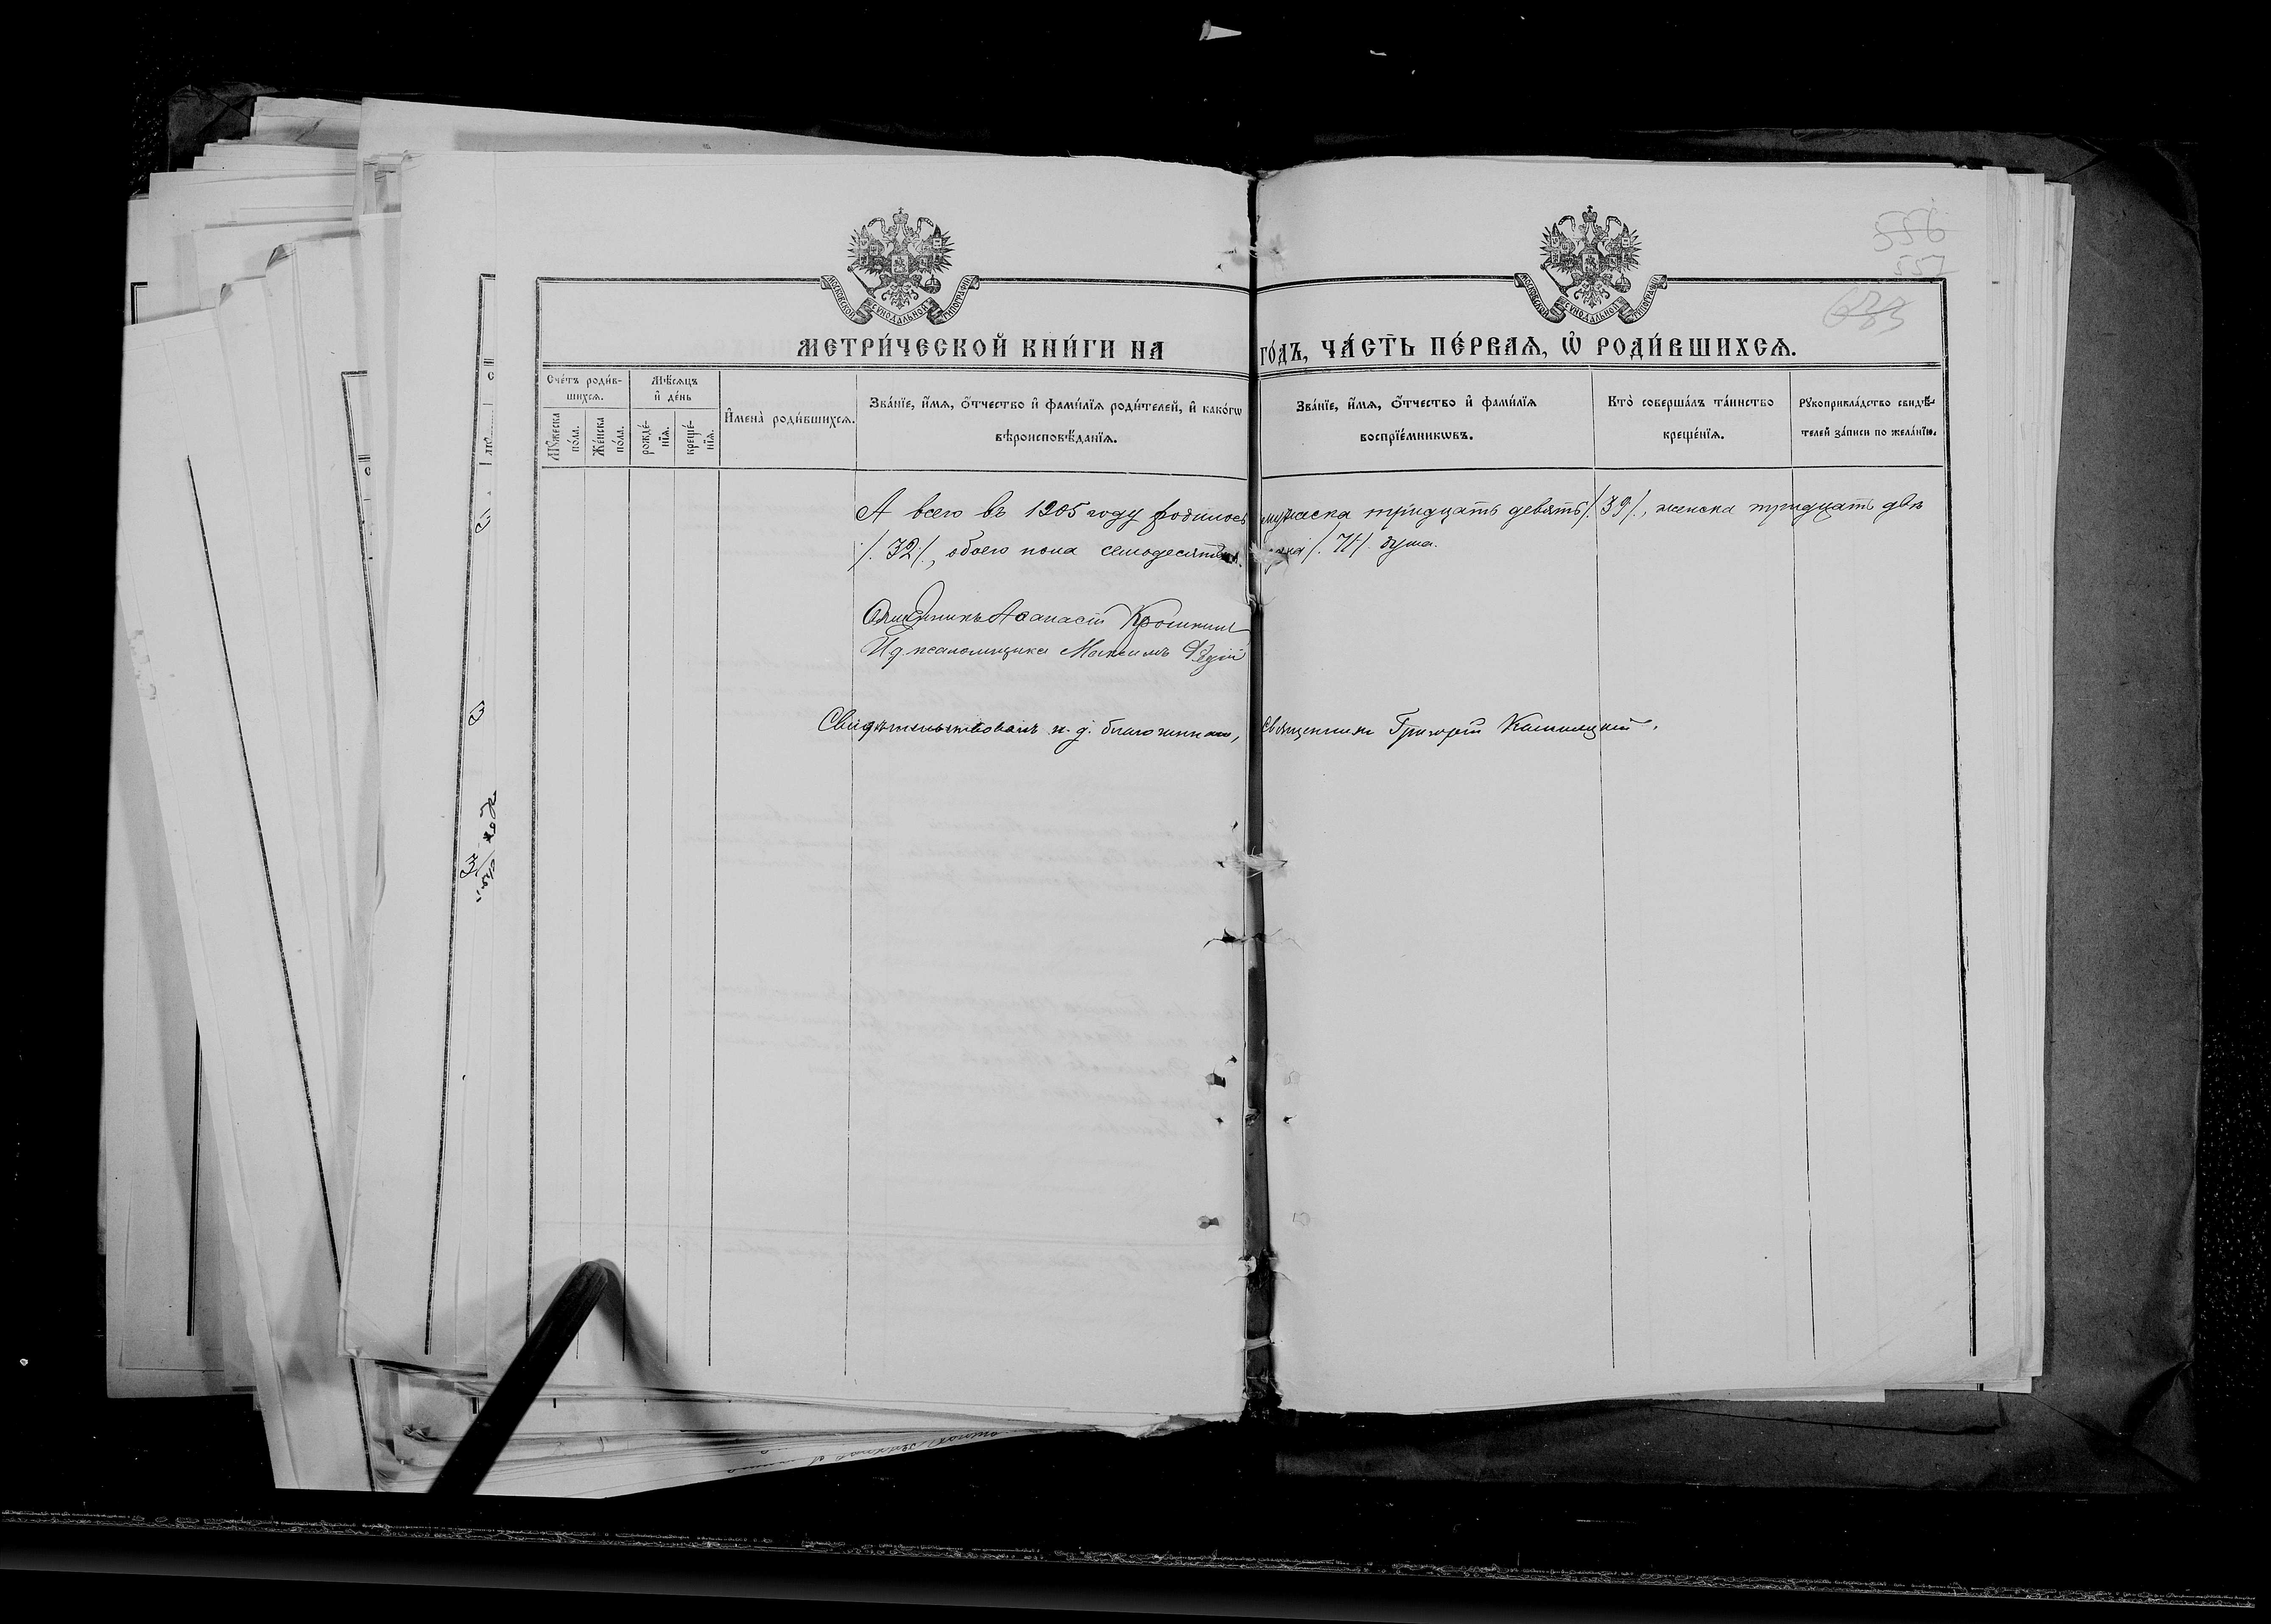 556
557
683
МОСКОВСКОЙ СѴНОДАЛЬНОЙ ТИПОГРАФІИ
МОСКОВСКОЙ СѴНОДАЛЬНОЙ ТИПОГРАФІИ
МЕТРИ́ЧЕСКОЙ КНИ́ГИ НА ГО́ДЪ, ЧА́СТЬ ПЕ́РВАѦ, Ѡ҆ РОДИ́ВШИХСѦ.
Сче́тъ роди́в-
шихсѧ.
Мѹ́жеска по́ла.
Же́нска по́ла.
Мѣ́сѧцъ
и҆ де́нь
рожде́-
нїѧ.
креще́-
нїѧ.
И҆мена̀ роди́вшихсѧ.
Зва́нїе, и҆́мѧ, ѻ҆́тчество и҆ фами́лїѧ роди́телей, и҆ како́гѡ
вѣроисповѣ́данїѧ.
Зва́нїе, и҆́мѧ, ѻ҆́тчество и҆ фами́лїѧ
воспрїе́мникѡвъ.
Кто̀ соверша́лъ та́инство
креще́нїѧ.
Рꙋкоприкла́дство свидѣ́-
телей за́писи по жела́нїю.
А всего въ 1905 году родилось мужска тридцать девять /.39/., женска тридцать двѣ
/.32/., обоего пола семьдесятъ одна /.71/. душа.
Священникъ Аѳанасій
И д. псаломщика Максимъ
Свидѣтельствовалъ и. д. благочиннаго, Священникъ Григорій